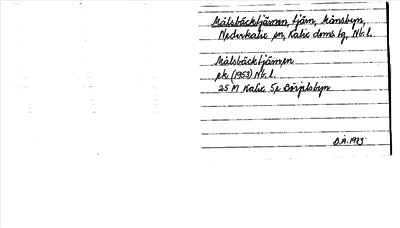 Målsbäckstjärnen, tjärn, Månsbyn,
Nederkalix sn, Kalix dms. tg, Nb. l.
Målsbäckstjärnen
ek (1953) Nb. l.
25 M Kalix 5e Börjelsbyn
D.A. 1973